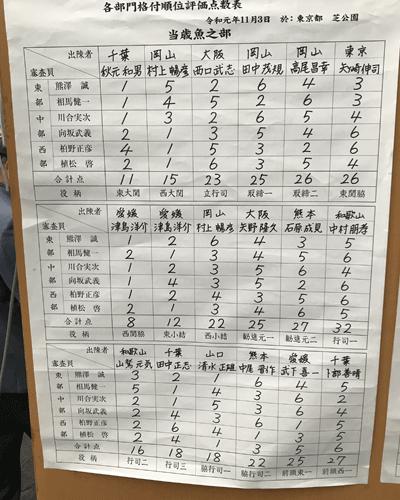 各部門格付順位評価点数表
令和元年11月3日 於:東京都 芝公園
当歳魚之部
出陳者 千葉 岡山 大阪 岡山 岡山 東京
審査員 秋元和男 村上暢彦 西口武志 田中茂規 高尾昌幸 矢崎伸司
東 熊澤 誠 1 5 2 6 4 3
部 相馬健一 1 4 5 2 6 3
中 川合実次 1 3 2 6 5 4
部 向坂武義 2 1 3 5 4 6
西 柏野正彦 4 1 5 3 2 6
部 植松 啓 2 1 6 3 5 4
合計点 11 15 23 25 26 26
役柄 東大関 西大関 立行司 取締一 取締二 東関脇
出陳者 愛媛 愛媛 岡山 大阪 熊本 和歌山
審査員 津島洋介 津島洋介 村上暢彦 矢野隆久 石原成見 中村朋孝
東 熊澤 誠 1 2 6 4 3 5
部 相馬健一 2 1 3 4 5 6
中 川合実次 1 2 3 5 6 4
部 向坂武義 1 4 3 5 2 6
西 柏野正彦 1 2 4 3 5 6
部 植松 啓 2 1 3 4 6 5
合計点 8 12 22 25 27 32
役柄 西関脇 東小結 西小結 勧進元一 勧進元二 行司一
出陳者 和歌山 千葉 山口 熊本 愛媛 千葉
審査員 山鷲元気 田中正志 清水正雄 中尾 武下喜一 卜部善晴
東 熊澤 誠 3 2 1 6 4 5
部 相馬健一 5 1 4 3 6 2
中 川合実次 2 1 5 3 6 4
部 向坂武義 2 4 3 6 1 5
西 柏野正彦 2 6 4 1 3 5
部 植松 啓 2 4 1 3 5 6
合計点 16 18 18 22 25 27
役柄 行司二 行司三 脇行司一 脇行司二 前頭東一 前頭西一